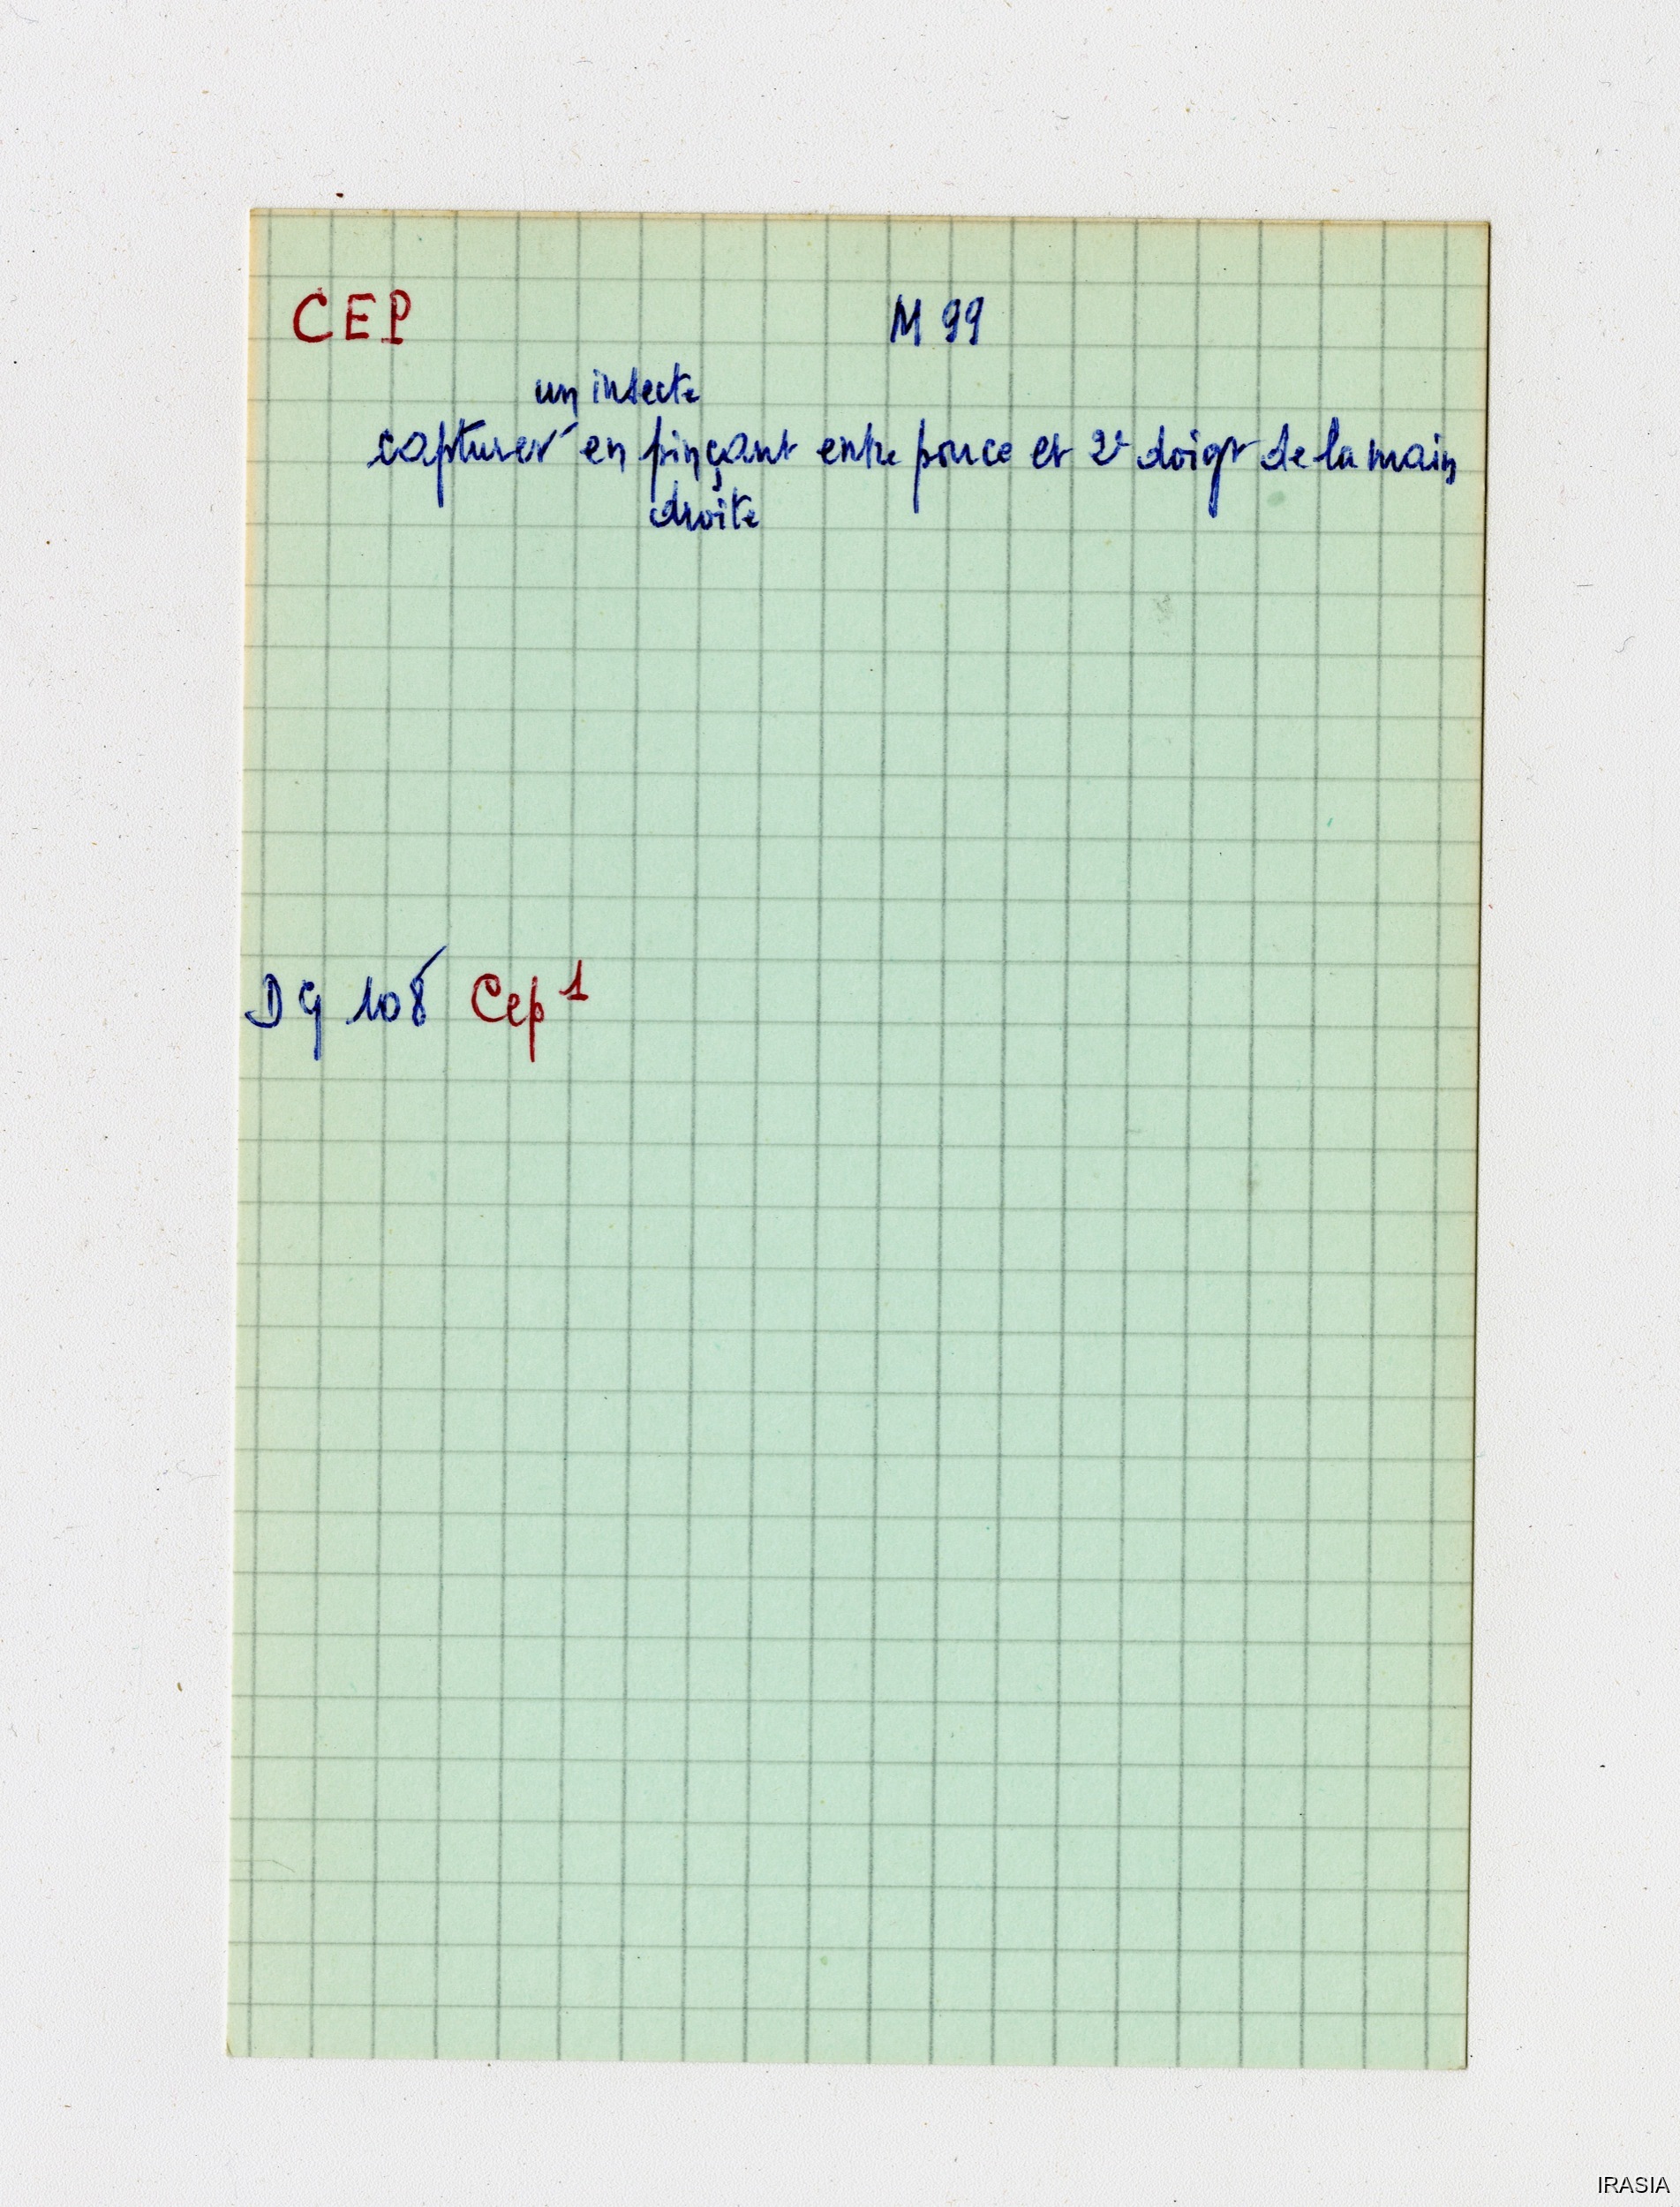 CEP M 99
un insecte
capturer en pinçant entre pouce et 2e doigt de la main
droite
DG 108 Cep 1
IRASIA